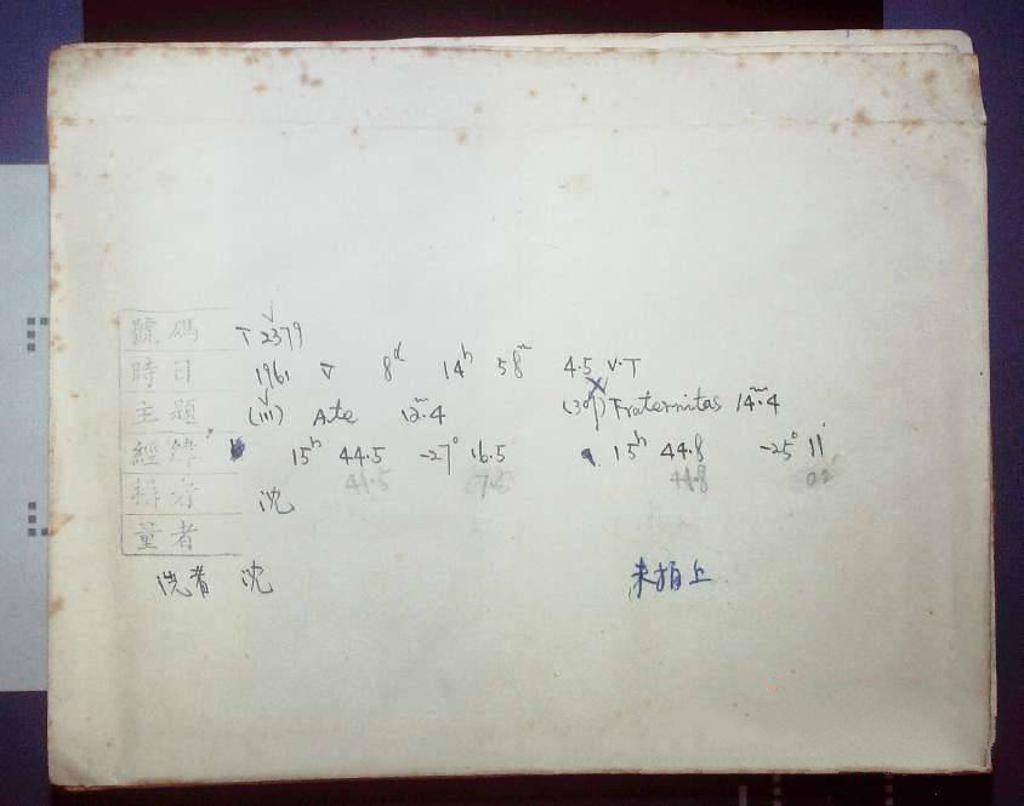 號碼 T 2379
時日 1961 V 8d 14h 58m 4.5 U.T
主題 (111) Ate 12m.4 (309) Fraternitas 14m.4
經緯 15h 44.5 -27° 16.5 15h 44.8 -25° 11'
44.8 02
攝者 沈
量者
洗者 沈 未拍上